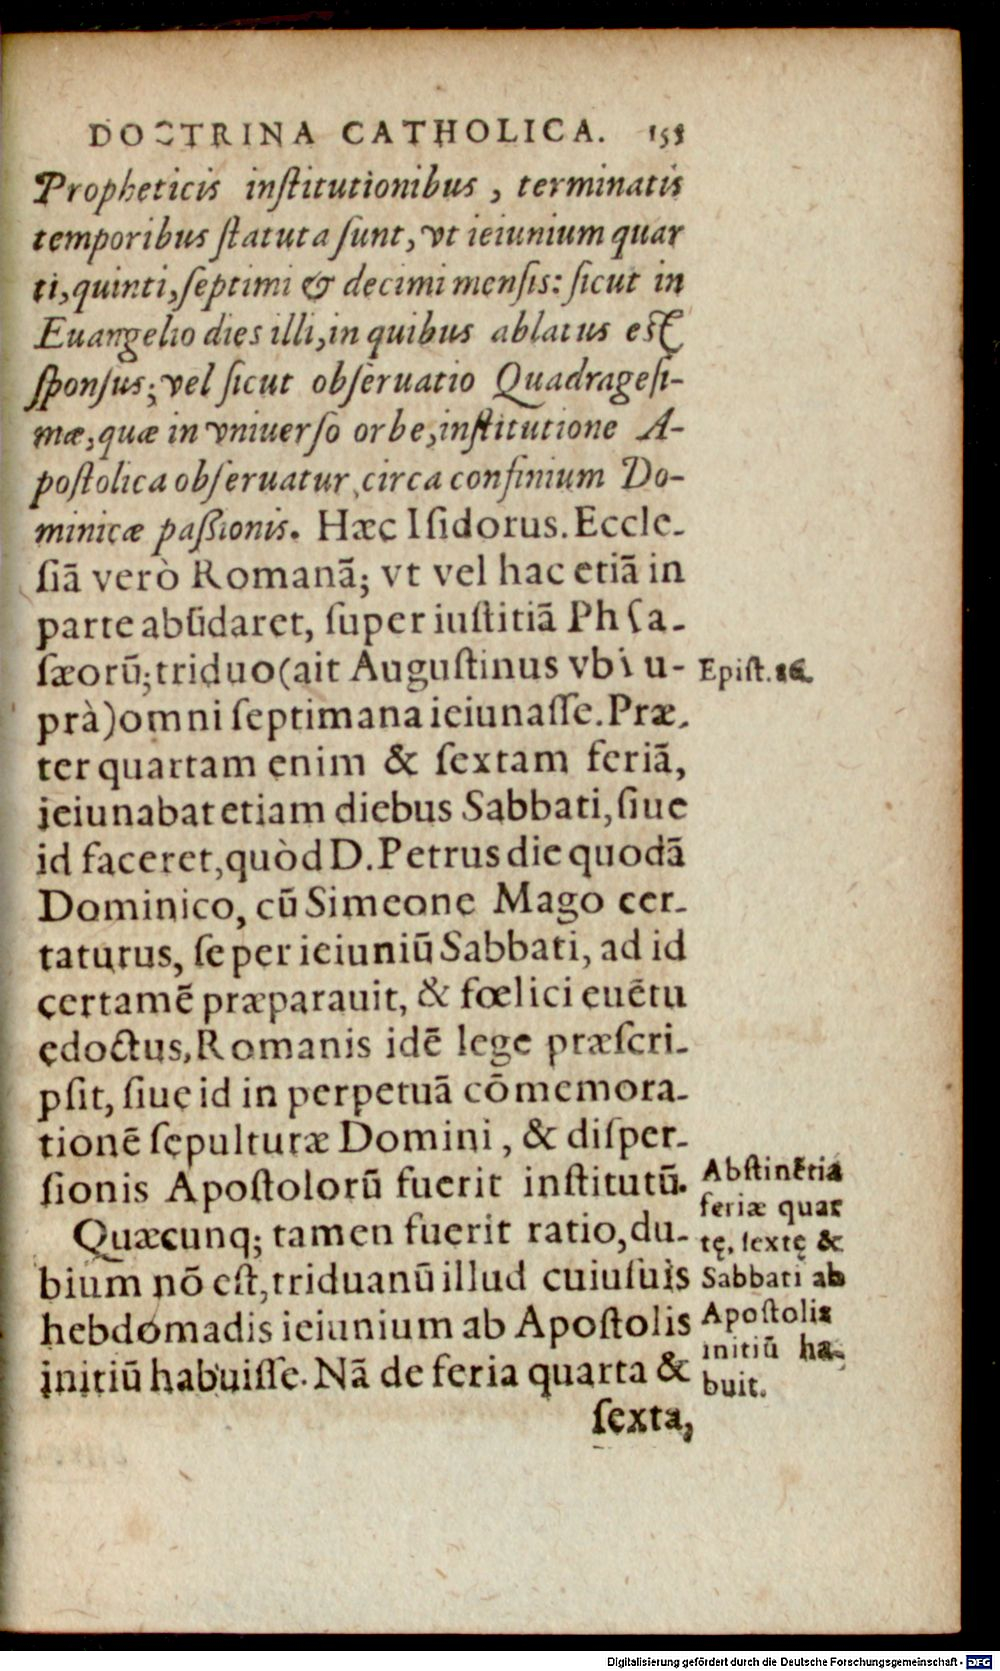 DOCTRINA CATHOLICA. 155
Propheticis inſtitutionibus, terminatis
temporibus ſtatuta ſunt, vt ieiunium quar
ti, quinti, ſeptimi & decimi menſis: ſicut in
Euangelio dies illi, in quibus ablatus eſt
ſponſus; vel ſicut obſeruatio Quadrageſi-
mæ, quæ in vniuerſo orbe, inſtitutione A-
poſtolica obſeruatur, circa confinium Do-
minicæ paſsionis. Hæc Iſidorus. Eccle-
ſiã verò Romanã; vt vel hac etiã in
parte abũdaret, ſuper iuſtitiã
ſæorũ; triduo (ait Auguſtinus vbi u-
prà) omni ſeptimana ieiunaſſe. Præ-
ter quartam enim & ſextam feriã,
ieiunabat etiam diebus Sabbati, ſiue
id faceret, quòd D. Petrus die quodã
Dominico, cũ Simeone Mago cer-
taturus, ſe per ieiuniũ Sabbati, ad id
certamẽ præparauit, & fœlici euẽtu
edoctus, Romanis idẽ lege præſcri-
pſit, ſiue id in perpetuã cõmemora-
tionẽ ſepulturæ Domini, & diſper-
ſionis Apoſtolorũ fuerit inſtitutũ.
Quæcunq; tamen fuerit ratio, du-
bium nõ eſt, triduanũ illud cuiuſuis
hebdomadis ieiunium ab Apoſtolis
initiũ habuiſſe. Nã de feria quarta &
ſexta,
Epiſt. 86.
Abſtinẽtia
feriæ quar
tę, ſextę &
Sabbati ab
Apoſtolis
initiũ ha-
buit.
Digitalisierung gefördert durch die Deutsche Forschungsgemeinschaft - DFG